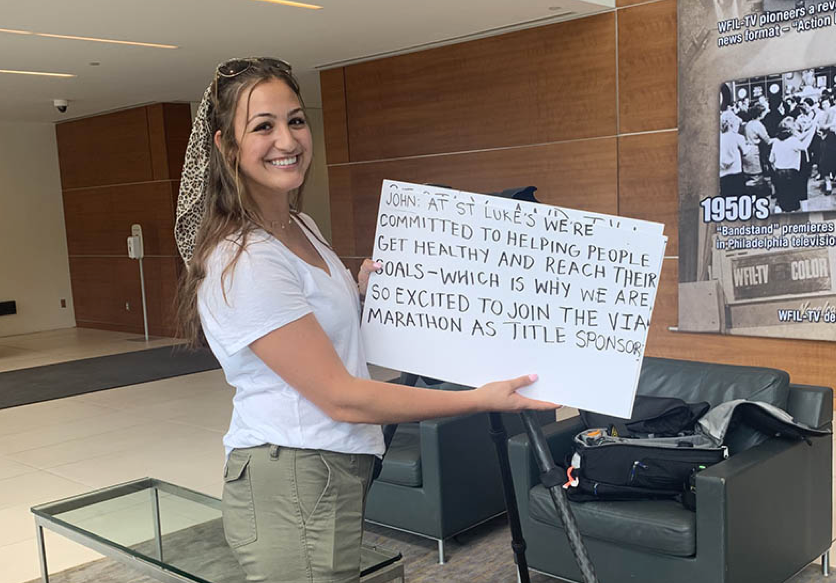 JOHN: AT ST LUKE'S WE'RE
COMMITTED TO HELPING PEOPLE
GET HEALTHY AND REACH THEIR
GOALS-WHICH IS WHY WE ARE
SO EXCITED TO JOIN THE VIA
MARATHON AS TITLE SPONSOR
WFIL-TV pioneers a rev
news format – "Action
1950's
"Bandstand" premieres
in Philadelphia televisio
WFIL-TV COLOR
WFIL-TV de